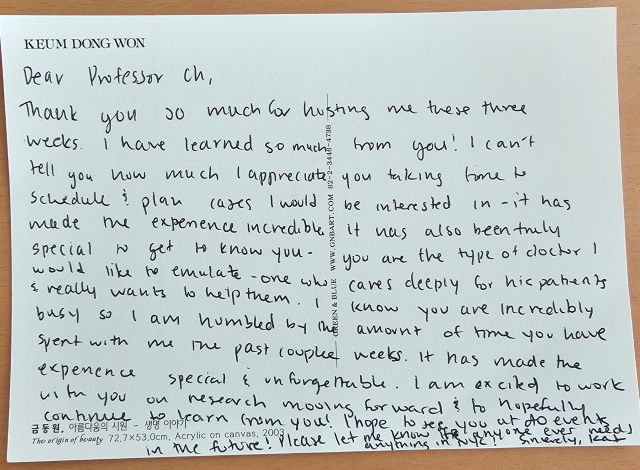 KEUM DONG WON
Dear Professor Ch,
Thank you so much for hosting me these three
weeks. I have learned so much from you! I can't
tell you how much I appreciate you taking time to
schedule & plan cases I would be interested in - it has
made the experience incredible. It has also been truly
special to get to know you - you are the type of doctor I
would like to emulate - one who cares deeply for his patients
& really wants to help them. I know you are incredibly
busy so I am humbled by the amount of time you have
spent with me the past couple weeks. It has made the
experience special & unforgettable. I am excited to work
with you on research moving forward & to hopefully
continue to learn from you! I hope to see you at events
in the future! Please let me know if anyone ever needs
anything in Sincerely, Kat
GREEN & BLUE WWW.GNBART.COM 82-2-3446-4738
금동원, 아름다움의 시원 - 생명 이야기
The origin of beauty 72,7×53,0cm, Acrylic on canvas, 2003